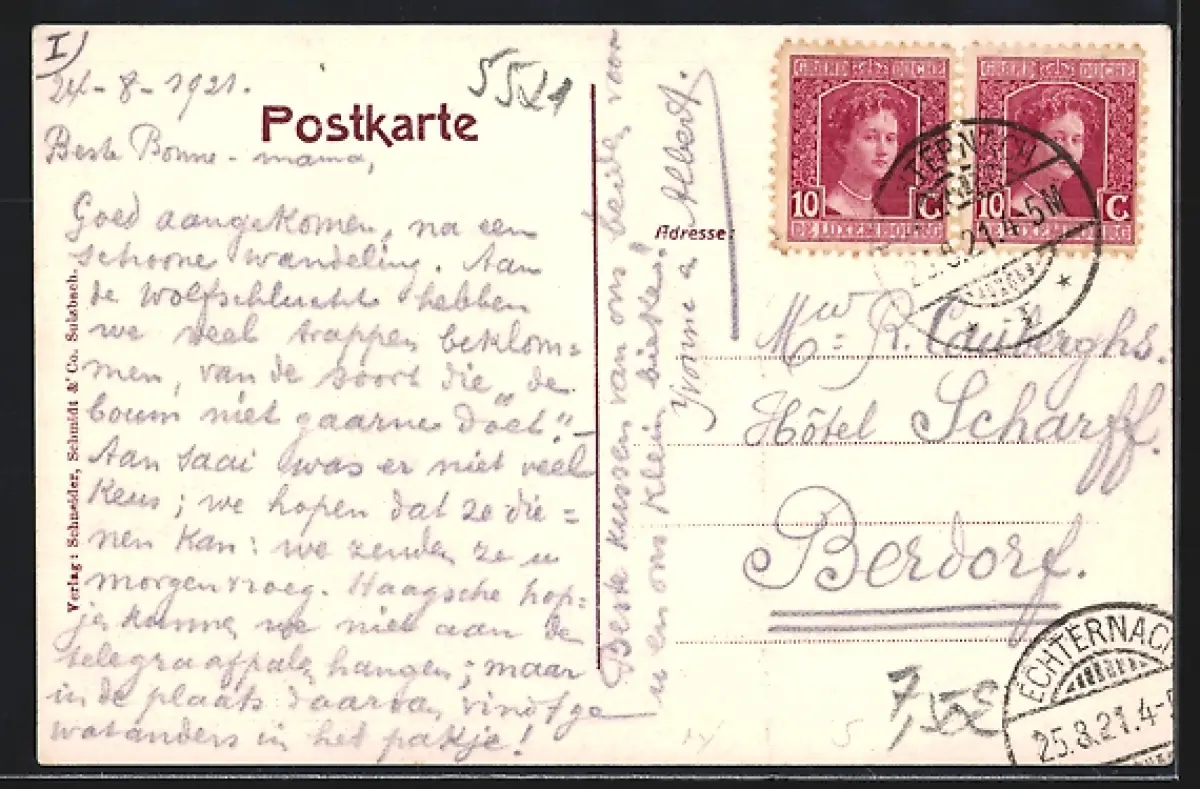 I)
24-8-1921.
5521
Postkarte
Beste Bonne-mama,
Goed aangekomen, na een
schoone wandeling. Aan
de Wolfschlucht hebben
we veel trappen beklom=
men, van de soort die „de
boum niet gaarne doet".-
Aan saai was er niet veel
keus; we hopen dat ze die=
nen kan: we zenden ze u
morgenvroeg. Haagsche hop=
jes kunnen we niet aan de
telegraafpalen hangen; maar
in de plaats daarvan vindt ge
wat anders in het pakje!
Beste kussen van ons beide, voor
u en ons klein
Yvonne a Albert.
Verlag: Schneider, Schmidt & Co. Sulzbach.
GRAND DUCHÉ
10 C
DE LUXEMBOURG
GRAND DUCHÉ
10 C
DE LUXEMBOURG
ECHTERNACH
25.8.21.4-5N
Adresse:
Mw: R. Cauberghs.
Hôtel Scharff.
Berdorf.
ECHTERNACH
25.8.21.4-5